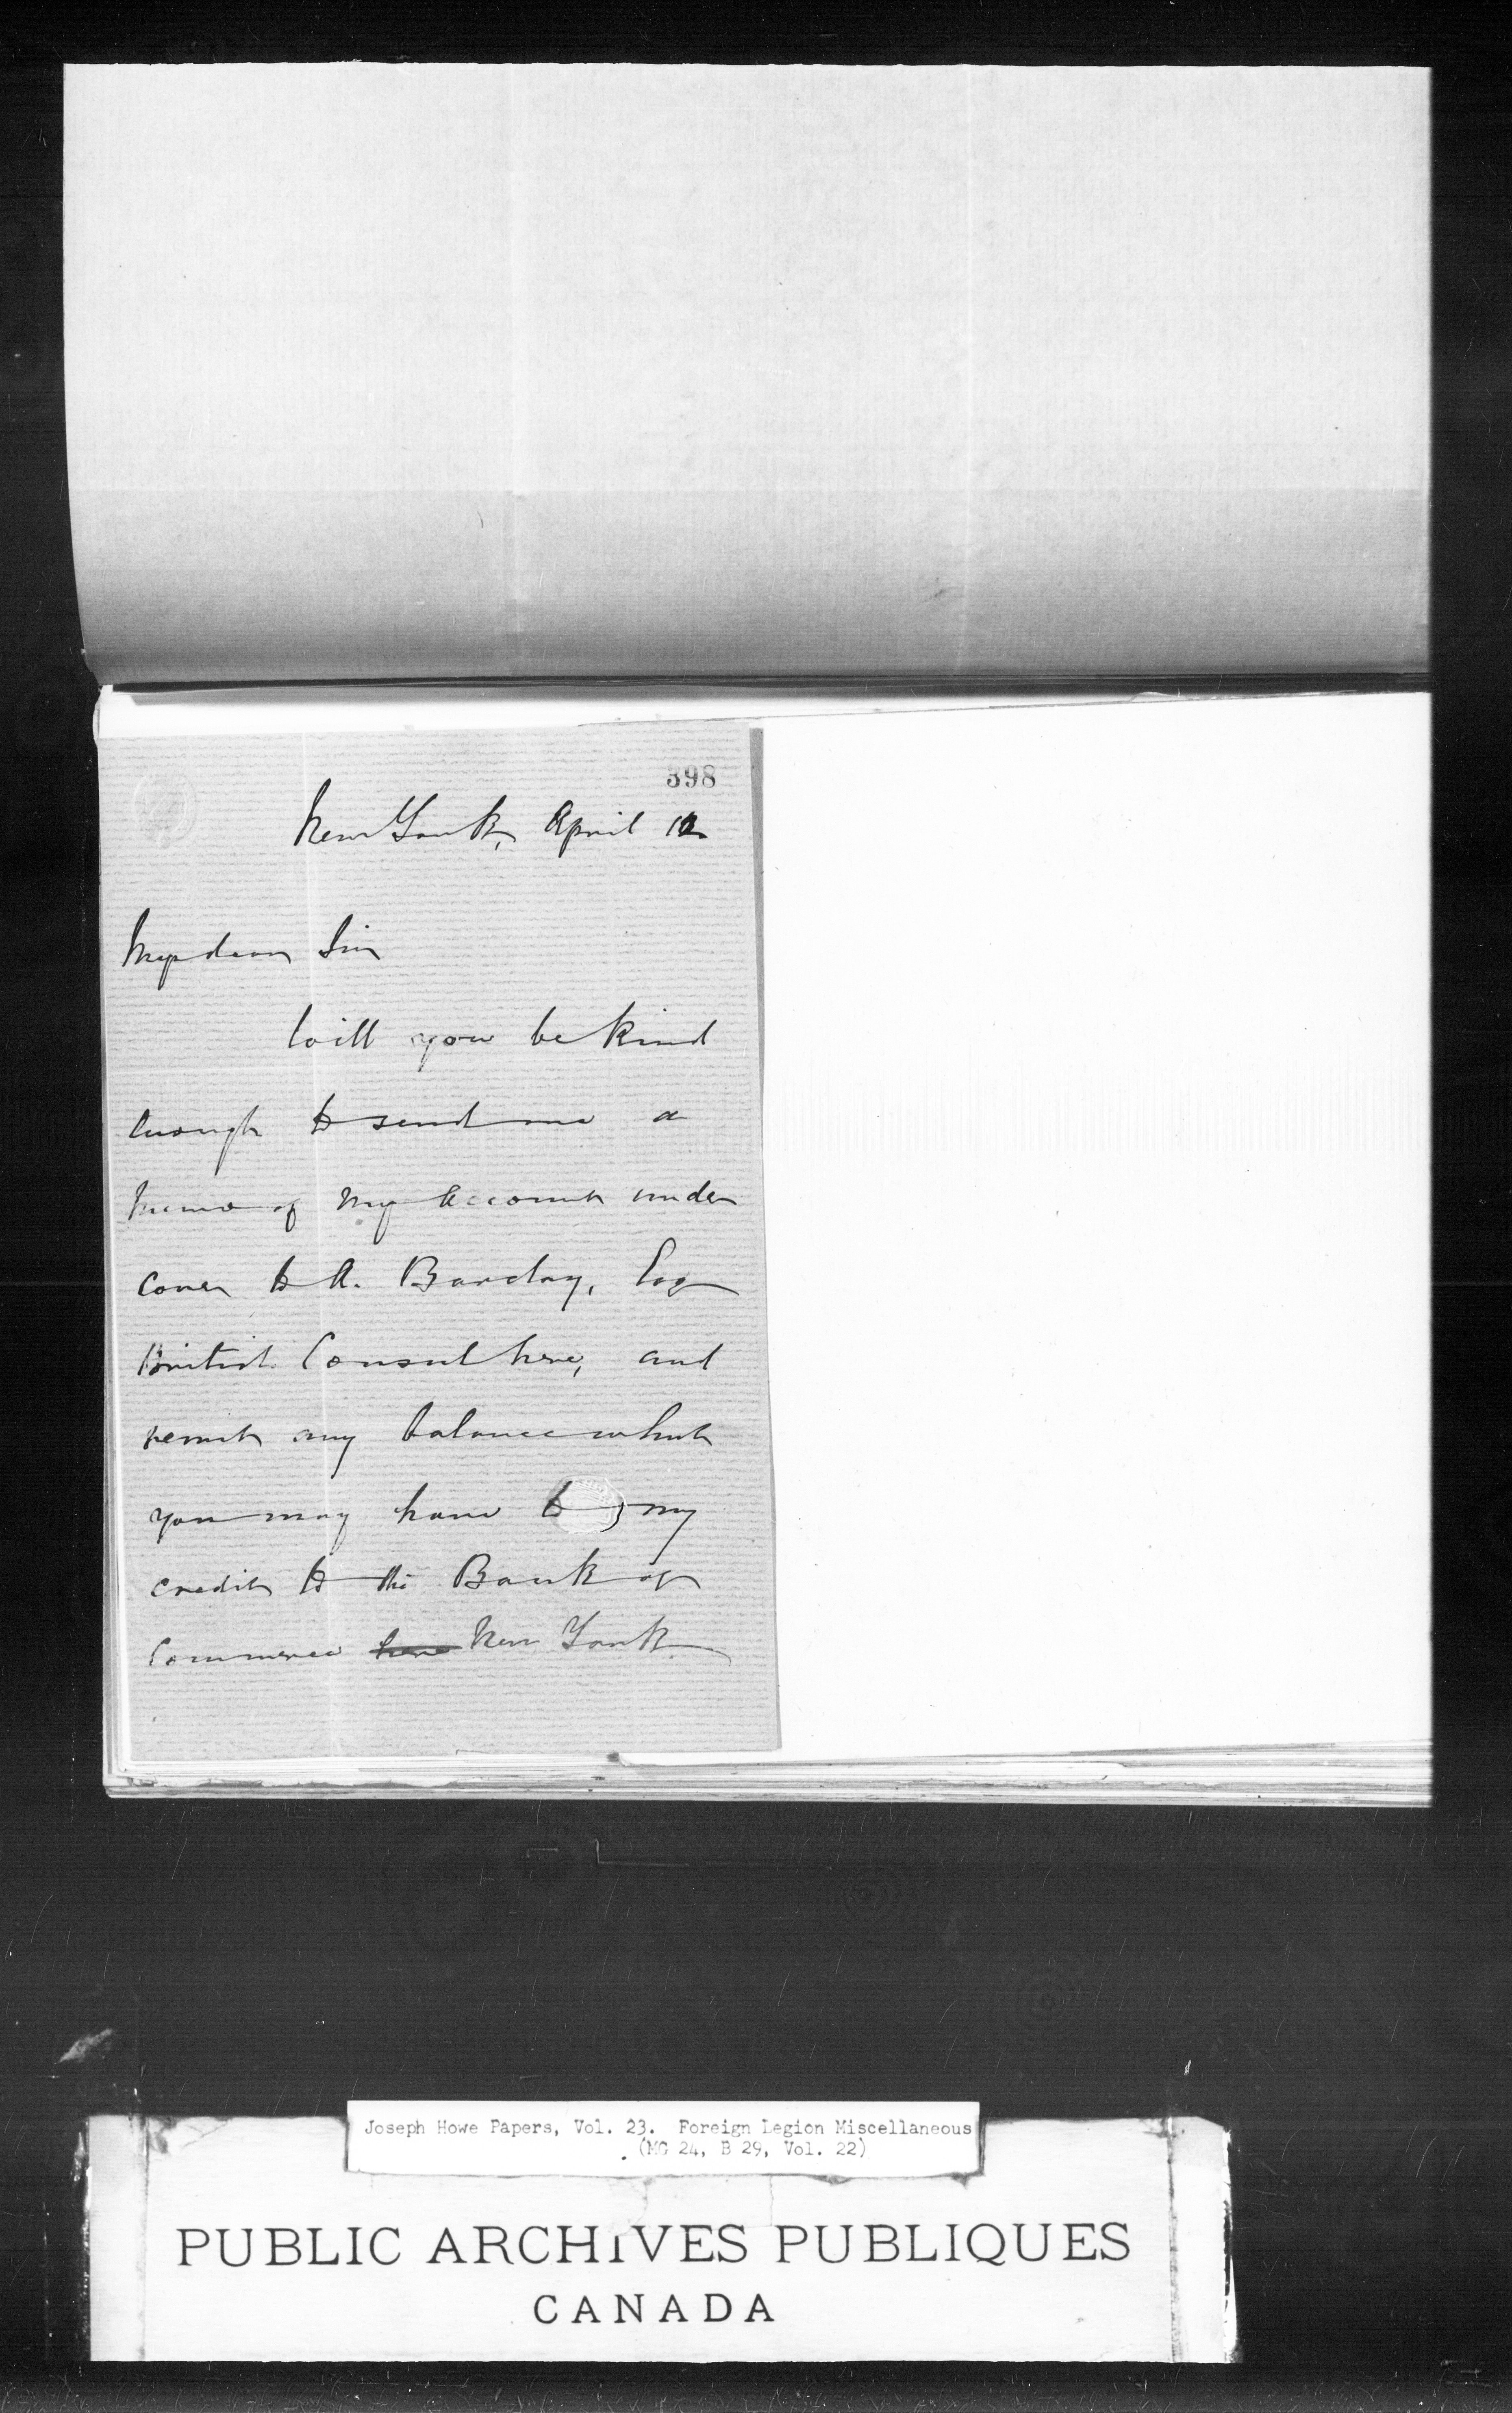 398
New York, April 12
My dear Sir
Will you be kind
enough to send me a
memo of my account under
cover to A. Barclay, Esq
British Consul here, and
remit any balance which
you may have to my
credit to the Bank of
Commerce here New York.
Joseph Howe Papers, Vol. 23. Foreign Legion Miscellaneous
(MG 24, B 29, Vol. 22)
PUBLIC ARCHIVES PUBLIQUES
CANADA